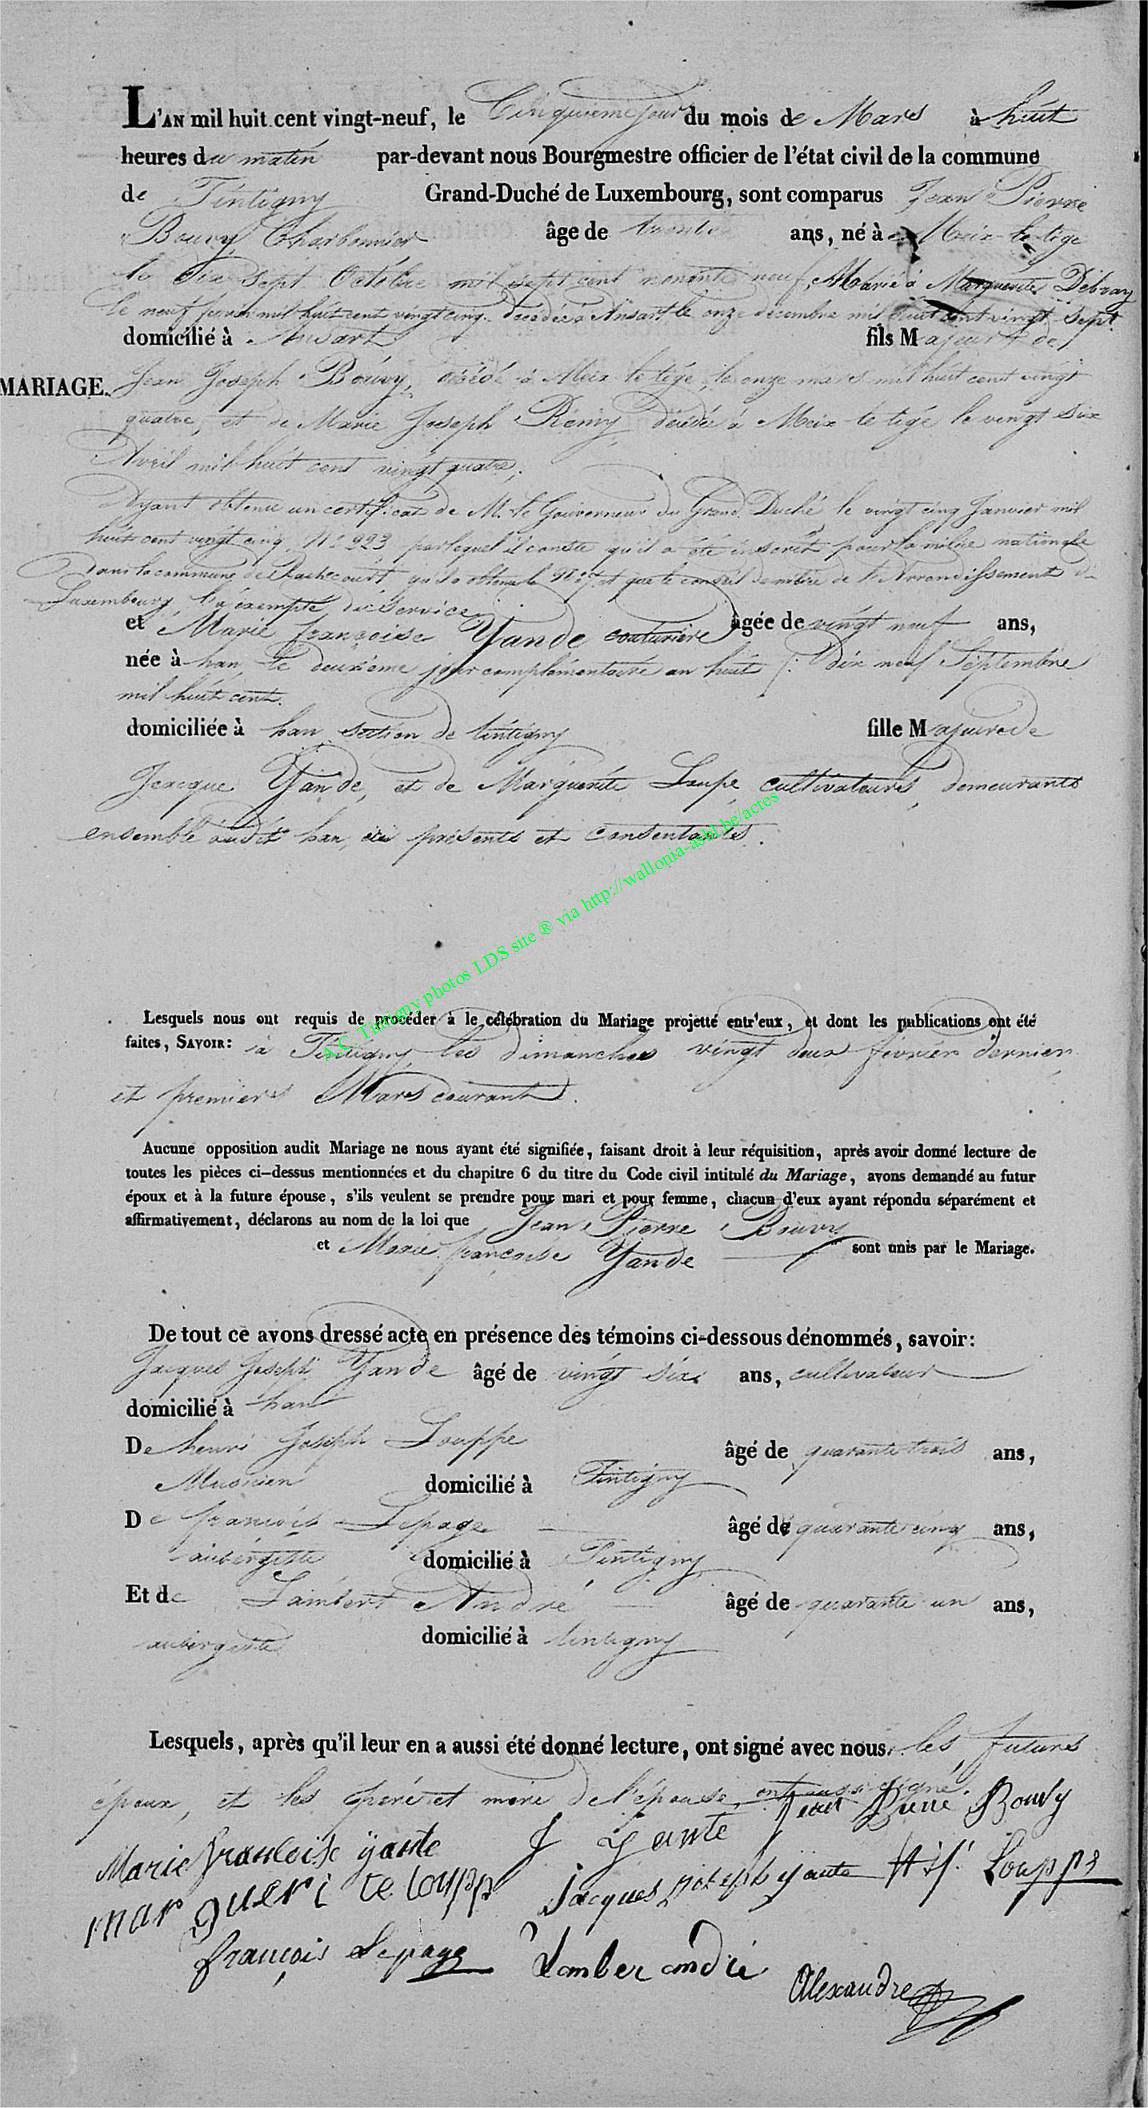 L'AN mil huit cent vingt-neuf, le Cinquieme jour du mois de Mars à huit
heures du matin par-devant nous Bourgmestre officier de l'état civil de la commune
de Tintigny Grand-Duché de Luxembourg, sont comparus Jean Pierre
Bouvy Charbonnier âge de trente ans, né à Meix-le-tige
le dix sept Octobre mil sept cent nonante neuf, Marié à Marguerite
le neuf juin mil huit cent vingt cinq décédée à Ansart le onze décembre mil huit cent vingt sept
domicilié à Ansart fils Majeur de
MARIAGE.
Jean Joseph Bouvy, décédé à Meix le tige le onze mars mil huit cent vingt
quatre, et de Marie Joseph Rémy décédé à Meix-le tige le vingt six
Avril mil huit cent vingt quatre,
Ayant obtenu un certificat de M. le Gouverneur du Grand Duché le vingt cinq Janvier mil
huit cent vingt cinq N° 993 par lequel il conste qu'il a été inscrit pour la milice nationale
dans la commune de Rachecourt qu'il a obtenu le N° 7 et que le conseil de milice de l'Arrondissement de
Luxembourg l'a exempté du service
et Marie françoise Yande couturière âgée de vingt neuf ans,
née à han le deuxième jour complémentaire an huit dix neuf Septembre
mil huit cent.
domiciliée à han section de tintigny fille Majeure de
Jacque Yande, et de Marguerite Loupe cultivateurs, demeurants
ensemble audit han ici présents et consentants.
A.C. Tintigny photos LDS site ® via http://wallonia-asbl.be/actes
Lesquels nous ont requis de procéder à le célébration du Mariage projetté entr'eux, et dont les publications ont été
faites, SAVOIR: à Tintigny les dimanches vingt deux février dernier
et premier Mars courant.
Aucune opposition audit Mariage ne nous ayant été signifiée, faisant droit à leur réquisition, après avoir donné lecture de
toutes les pièces ci-dessus mentionnées et du chapitre 6 du titre du Code civil intitulé du Mariage, avons demandé au futur
époux et à la future épouse, s'ils veulent se prendre pour mari et pour femme, chacun d'eux ayant répondu séparément et
affirmativement, déclarons au nom de la loi que Jean Pierre Bouvy
et Marie françoise Yande sont unis par le Mariage.
De tout ce avons dressé acte en présence des témoins ci-dessous dénommés, savoir:
Jacques Joseph Yande âgé de vingt six ans, cultivateur
domicilié à han
De henri Joseph Louppe âgé de quarante trois ans,
Musicien domicilié à Tintigny
De françois Lepage âgé de quarante cinq ans,
aubergiste domicilié à Tintigny
Et de Lambert André âgé de quarante un ans,
aubergiste domicilié à tintigny
Lesquels, après qu'il leur en a aussi été donné lecture, ont signé avec nous. les futurs
époux, et les père et mère de l'épouse ont aussi signé.
Jean Pierre Bouvy
Marie francoise yante J yante
marguerite loupp Jacques joseph yante H: j: Loupps
françois Lepage Lamber andré
Alexandre